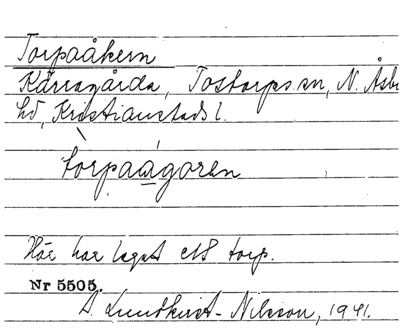 Torpaåkern
Kärragårda, Tostarps sn, N. Åsbo
hd, Kristianstads l.
tòrpaágoren
Här har legat ett torp.
Nr 5505.
D. Lundkvist-Nilsson, 1941.